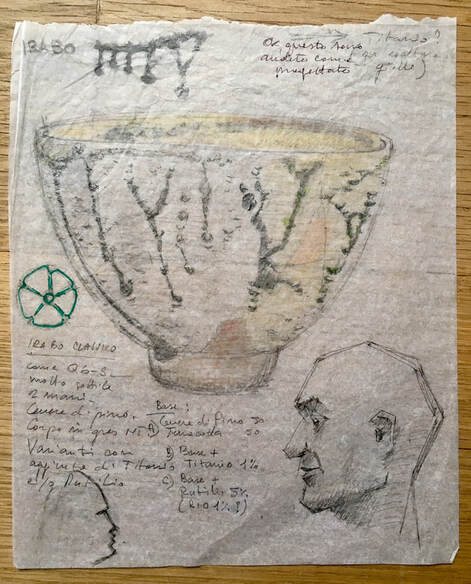 IRABO
Ok, questo sono
andato come
progettato
Titanio?
giallo)
IRABO CLASSICO
come Q6-S.
molto sottile
2 mani.
Cenere di pino.
Corpo in gres N1
Varianti con
aggiunta di Titanio
e/o Rutilio
Base:
A) Cenere di Pino 50
Terracotta 50
B) Base +
Titanio 1%
C) Base +
Rutilio 5%
(RIO 1% ?)